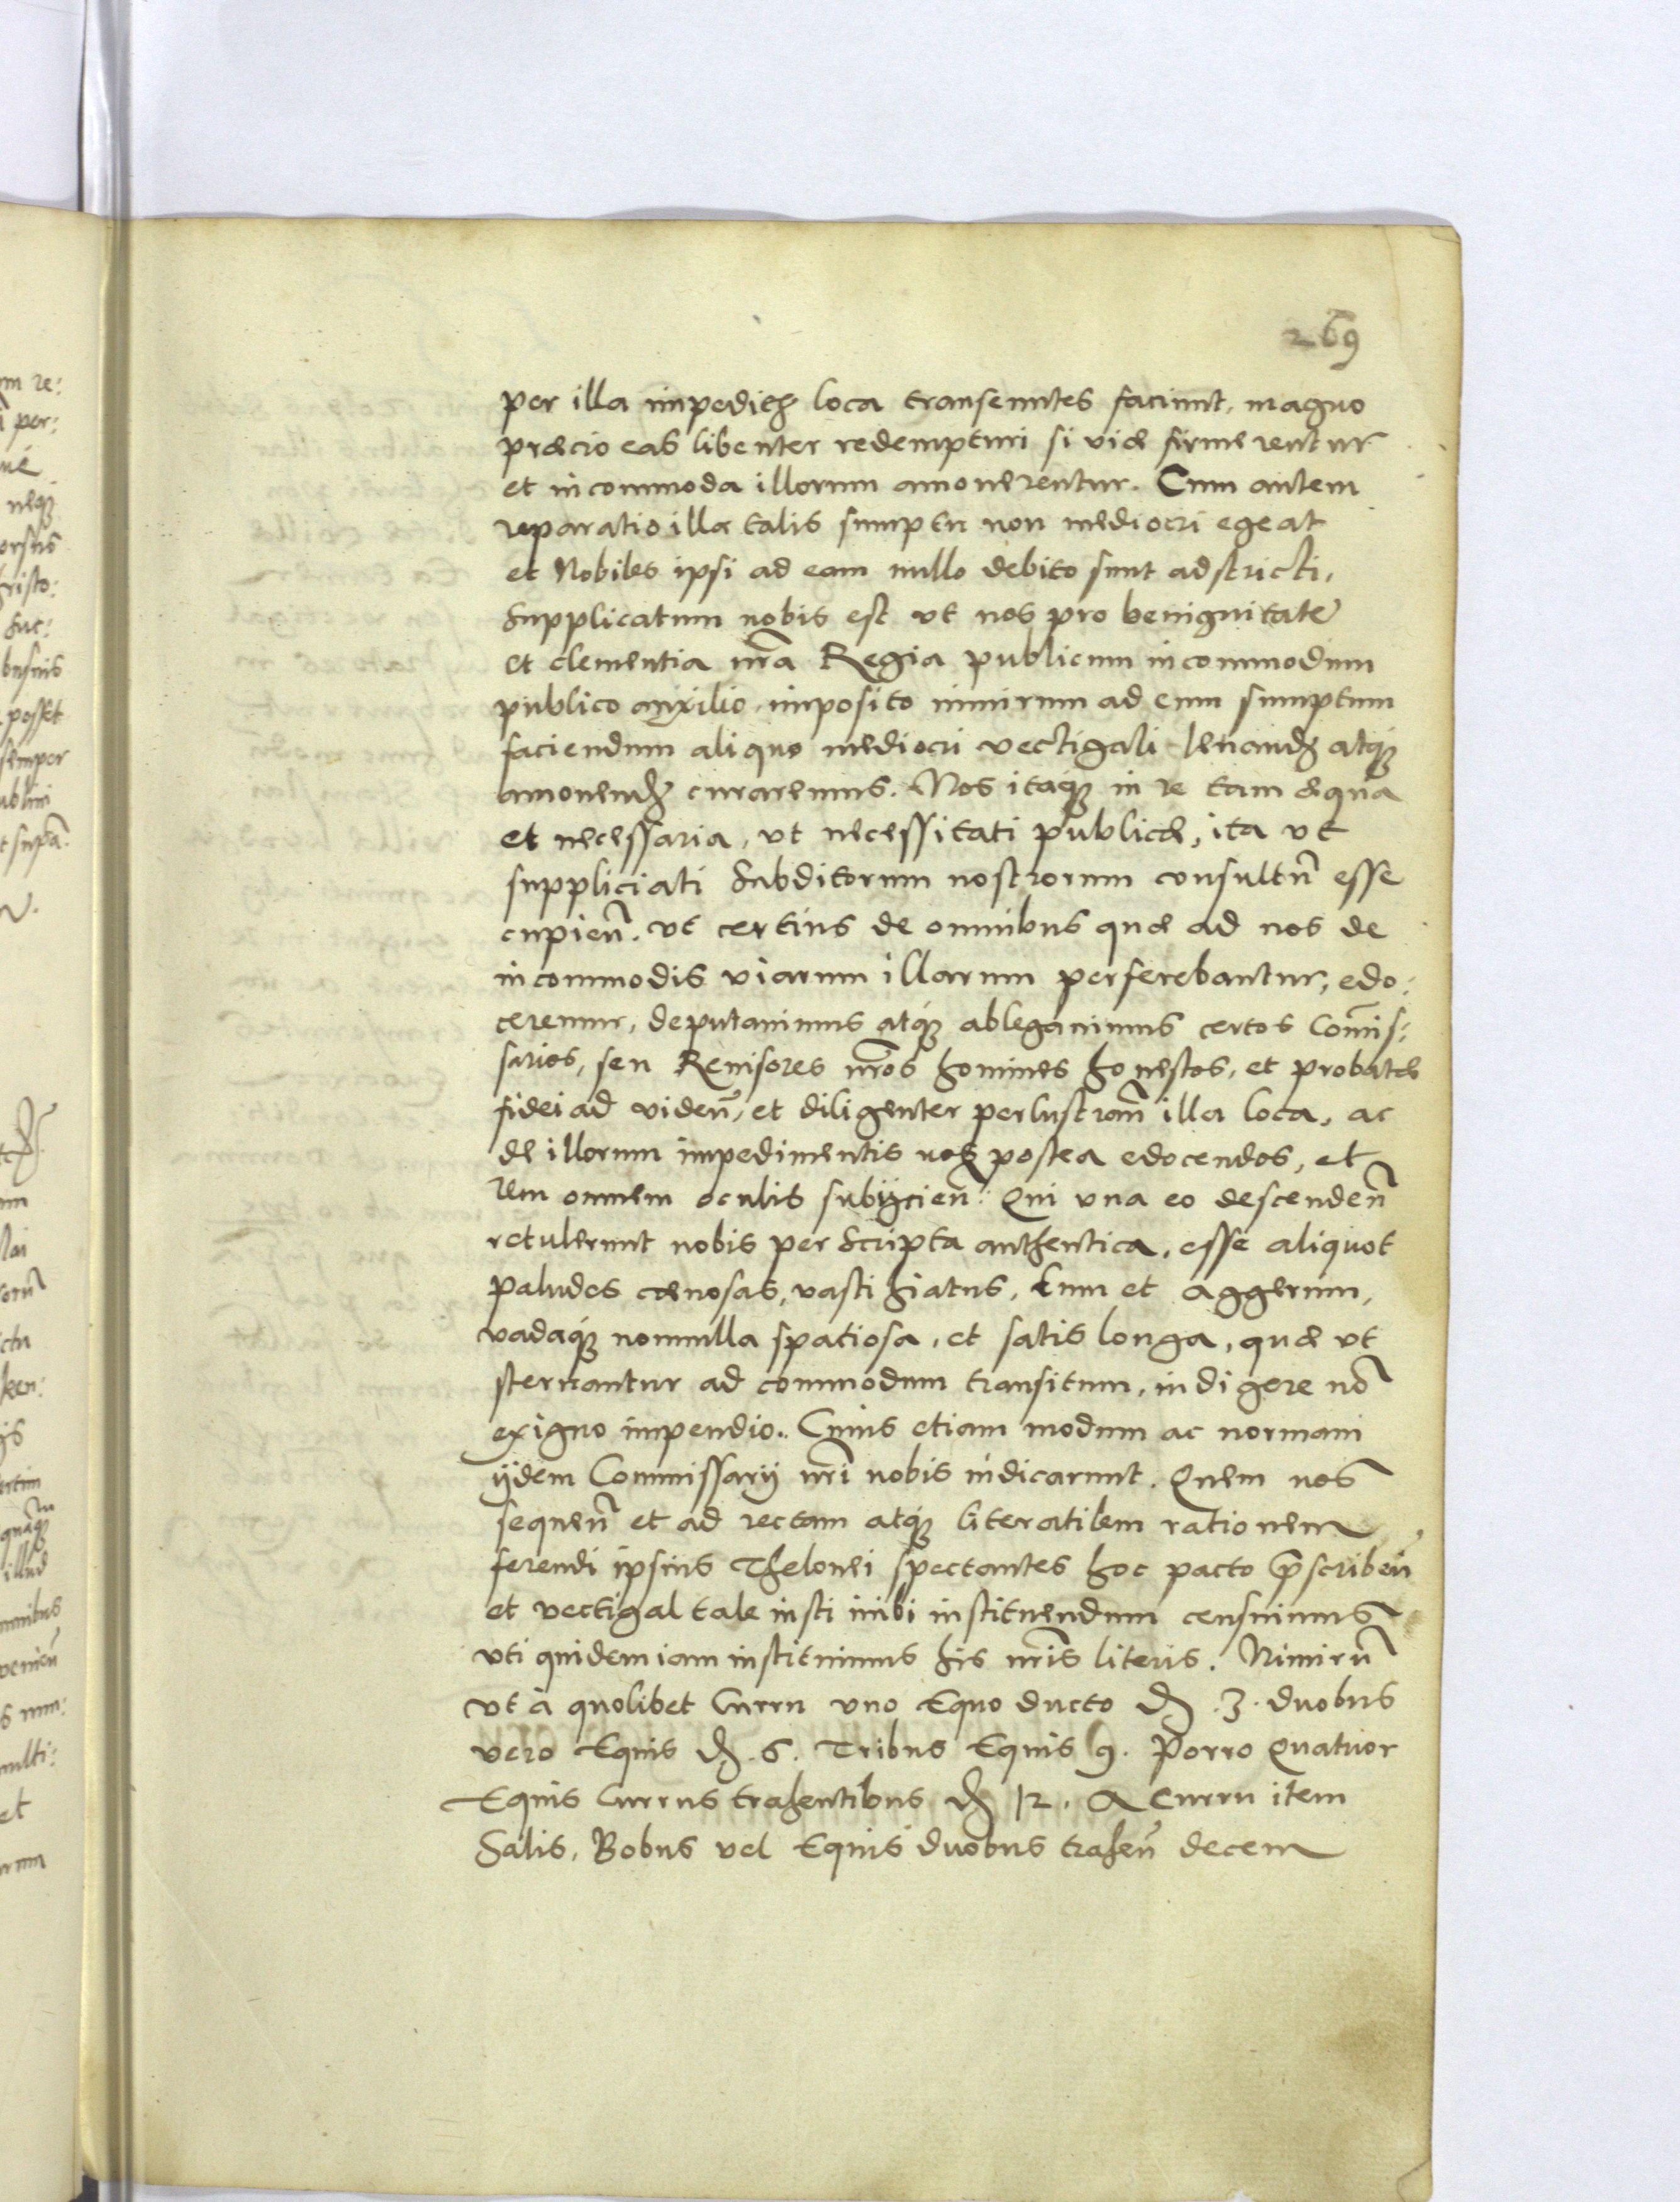 269
per illa impedita loca transeuntes faciunt, magno
præcio eas libenter redempturi si viæ firmerentur
et incommoda illorum amouerentur. Cum autem
reparatio illa talis sumptu non mediocri egeat
et Nobiles ipsi ad eam nullo debito sunt adstricti,
Supplicatum nobis est vt nos pro benignitate
et clementia nr̃a Regia publicum incommodum
publico auxilio, imposito nimirum ad eum sumptum
faciendum aliquo mediocri vectigali leuand atq́ue
amouend curaremus. Nos itaq́ue in re tam æqua
et necessaria, vt necessitati publicæ, ita vt
suppliciati Subditorum nostrorum consultũ esse
cupieñ. vt certius de omnibus quæ ad nos de
incommodis viarum illarum perferebantur, edo:
ceremur, deputauimus atq́ue ablegauimus certos Com̃is:
sarios, seu Reuisores nr̃os homines honestos, et probatæ
fidei ad videñ, et diligenter perlustrañ illa loca, ac
de illorum impedimentis nos postea edocendos, et
rem omnem oculis subijcieñ: Qui vna eo descendeñ
retulerunt nobis per Scripta authentica, esse aliquot
paludes cænosas, vasti hiatus, cum et aggerum,
vadaq́ue nonnulla spatiosa, et satis longa, quæ vt
sternantur ad commodum transitum, indigere nõ
exiguo impendio. Cuius etiam modum ac normam
ijdem Commissarij nr̃i nobis indicarunt. Quem nos
sequeñ et ad rectam atq́ue literatilem rationem
ferendi ipsius Thelonei spectantes hoc pacto p̃scribeñ
et vectigal tale iusti inibi instituendum censuimus
vti quidem iam instituimus his nr̃is literis. Nimirũ
vt à quolibet Curru vno Equo ducto ₰ .3. duobus
vero Equis ₰ .6. Tribus Equis 9. Porro Quatuor
Equis Currus trahentibus ₰ 12. A Curru item
Salis, Bobus vel Equis duobus traheñ decem